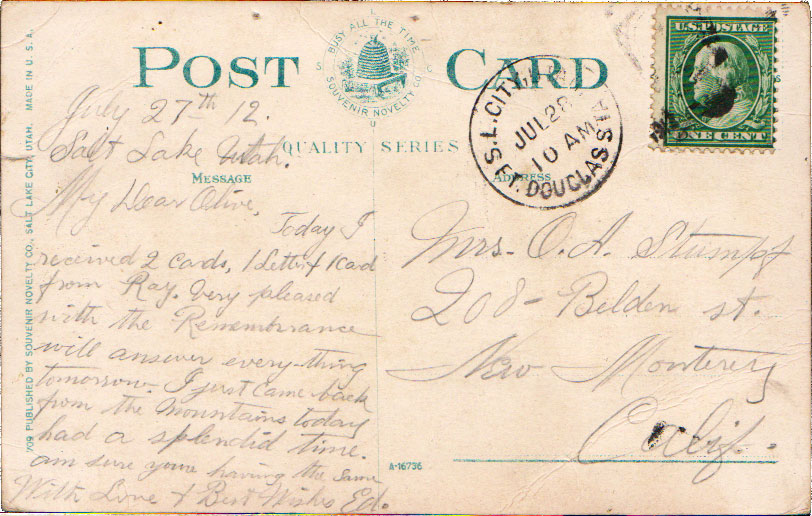 POST CARD
BUSY ALL THE TIME
SOUVENIR NOVELTY CO.
S
S
U
QUALITY SERIES
MESSAGE
ADDRESS
709 PUBLISHED BY SOUVENIR NOVELTY CO., SALT LAKE CITY, UTAH. MADE IN U.S.A.
A-16736
S.L. CITY, UTAH
JUL 28
10 AM
FT. DOUGLAS STA
U.S. POSTAGE
ONE CENT
July 27th 12.
Salt Lake Utah.
My Dear Olive,
Today I
received 2 cards, 1 Letter & 1 Card
from Ray. Very pleased
with the Remembrance
will answer every-thing
tomorrow. I just came back
from the mountains today
had a splendid time.
am sure youre having the same
With Love & Best Wishes Ed.
Mrs. O. A. Stumpf
208 - Belden st.
New Monterey
Calif.